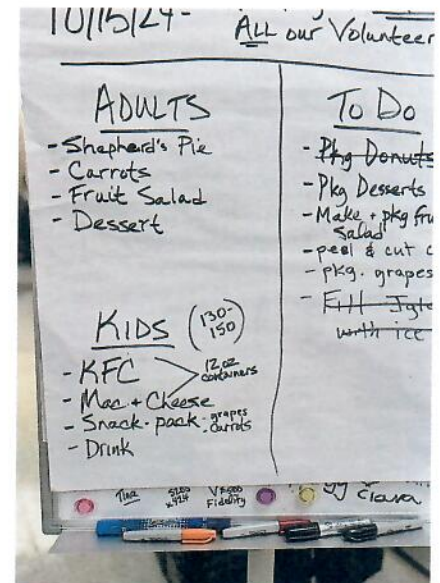 10/15/24-
ALL our Volunteer
ADULTS
- Shepherd's Pie
- Carrots
- Fruit Salad
- Dessert
KIDS (130-150)
- KFC
- Mac + Cheese
12 oz containers
- Snack-pack · grapes
· carrots
- Drink
To Do
- Pkg Donuts
- Pkg Desserts
- Make + pkg fru
Salad
- peel & cut c
- pkg. grapes
- Fill Igl
with ice
Tina
Fidelity